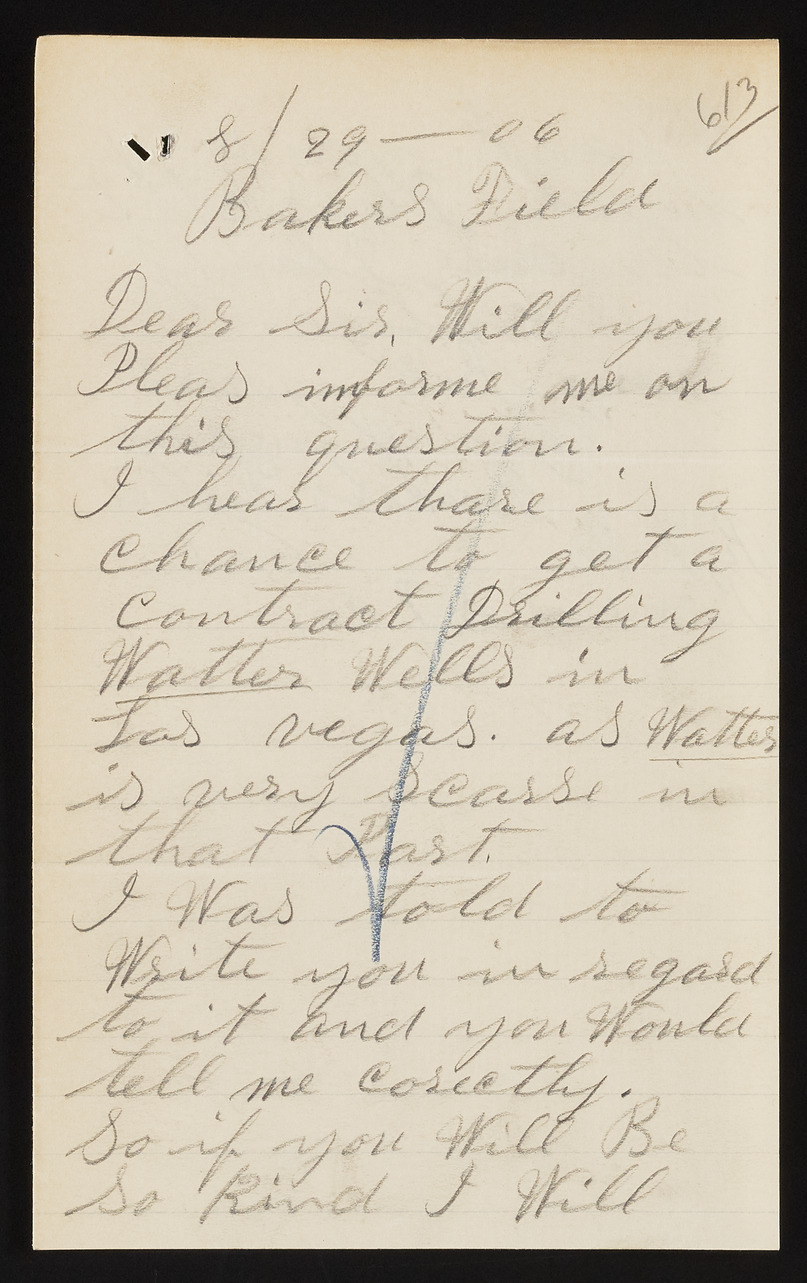 613
8/29—06
Bakers Field
Dear Sir, Will you
Pleas informe me on
this question.
I hear thare is a
chance to get a
contract Drilling
Watter Wells in
Las vegas. as Watter
is very Scarse in
that Part.
I Was told to
Write you in regard
to it and you Would
tell me corectly.
So if you Will Be
So Kind I Will